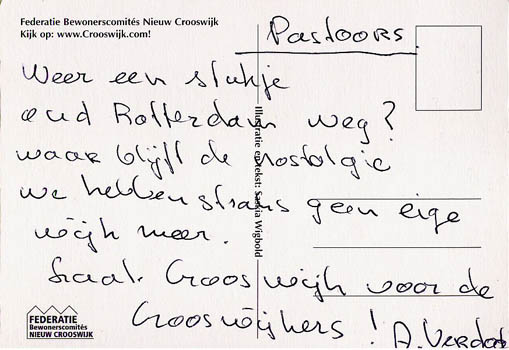 Federatie Bewonerscomités Nieuw Crooswijk
Kijk op: www.Crooswijk.com!
Pastoors.
Weer een stukje
oud Rotterdam weg?
waar blijft de nostalgie
we hebben straks geen eige
wijk meer.
Crooswijk voor de
Crooswijkers! A. Verdoos
Illustratie en tekst: Saskia Wigbold
FEDERATIE
Bewonerscomités
NIEUW CROOSWIJK